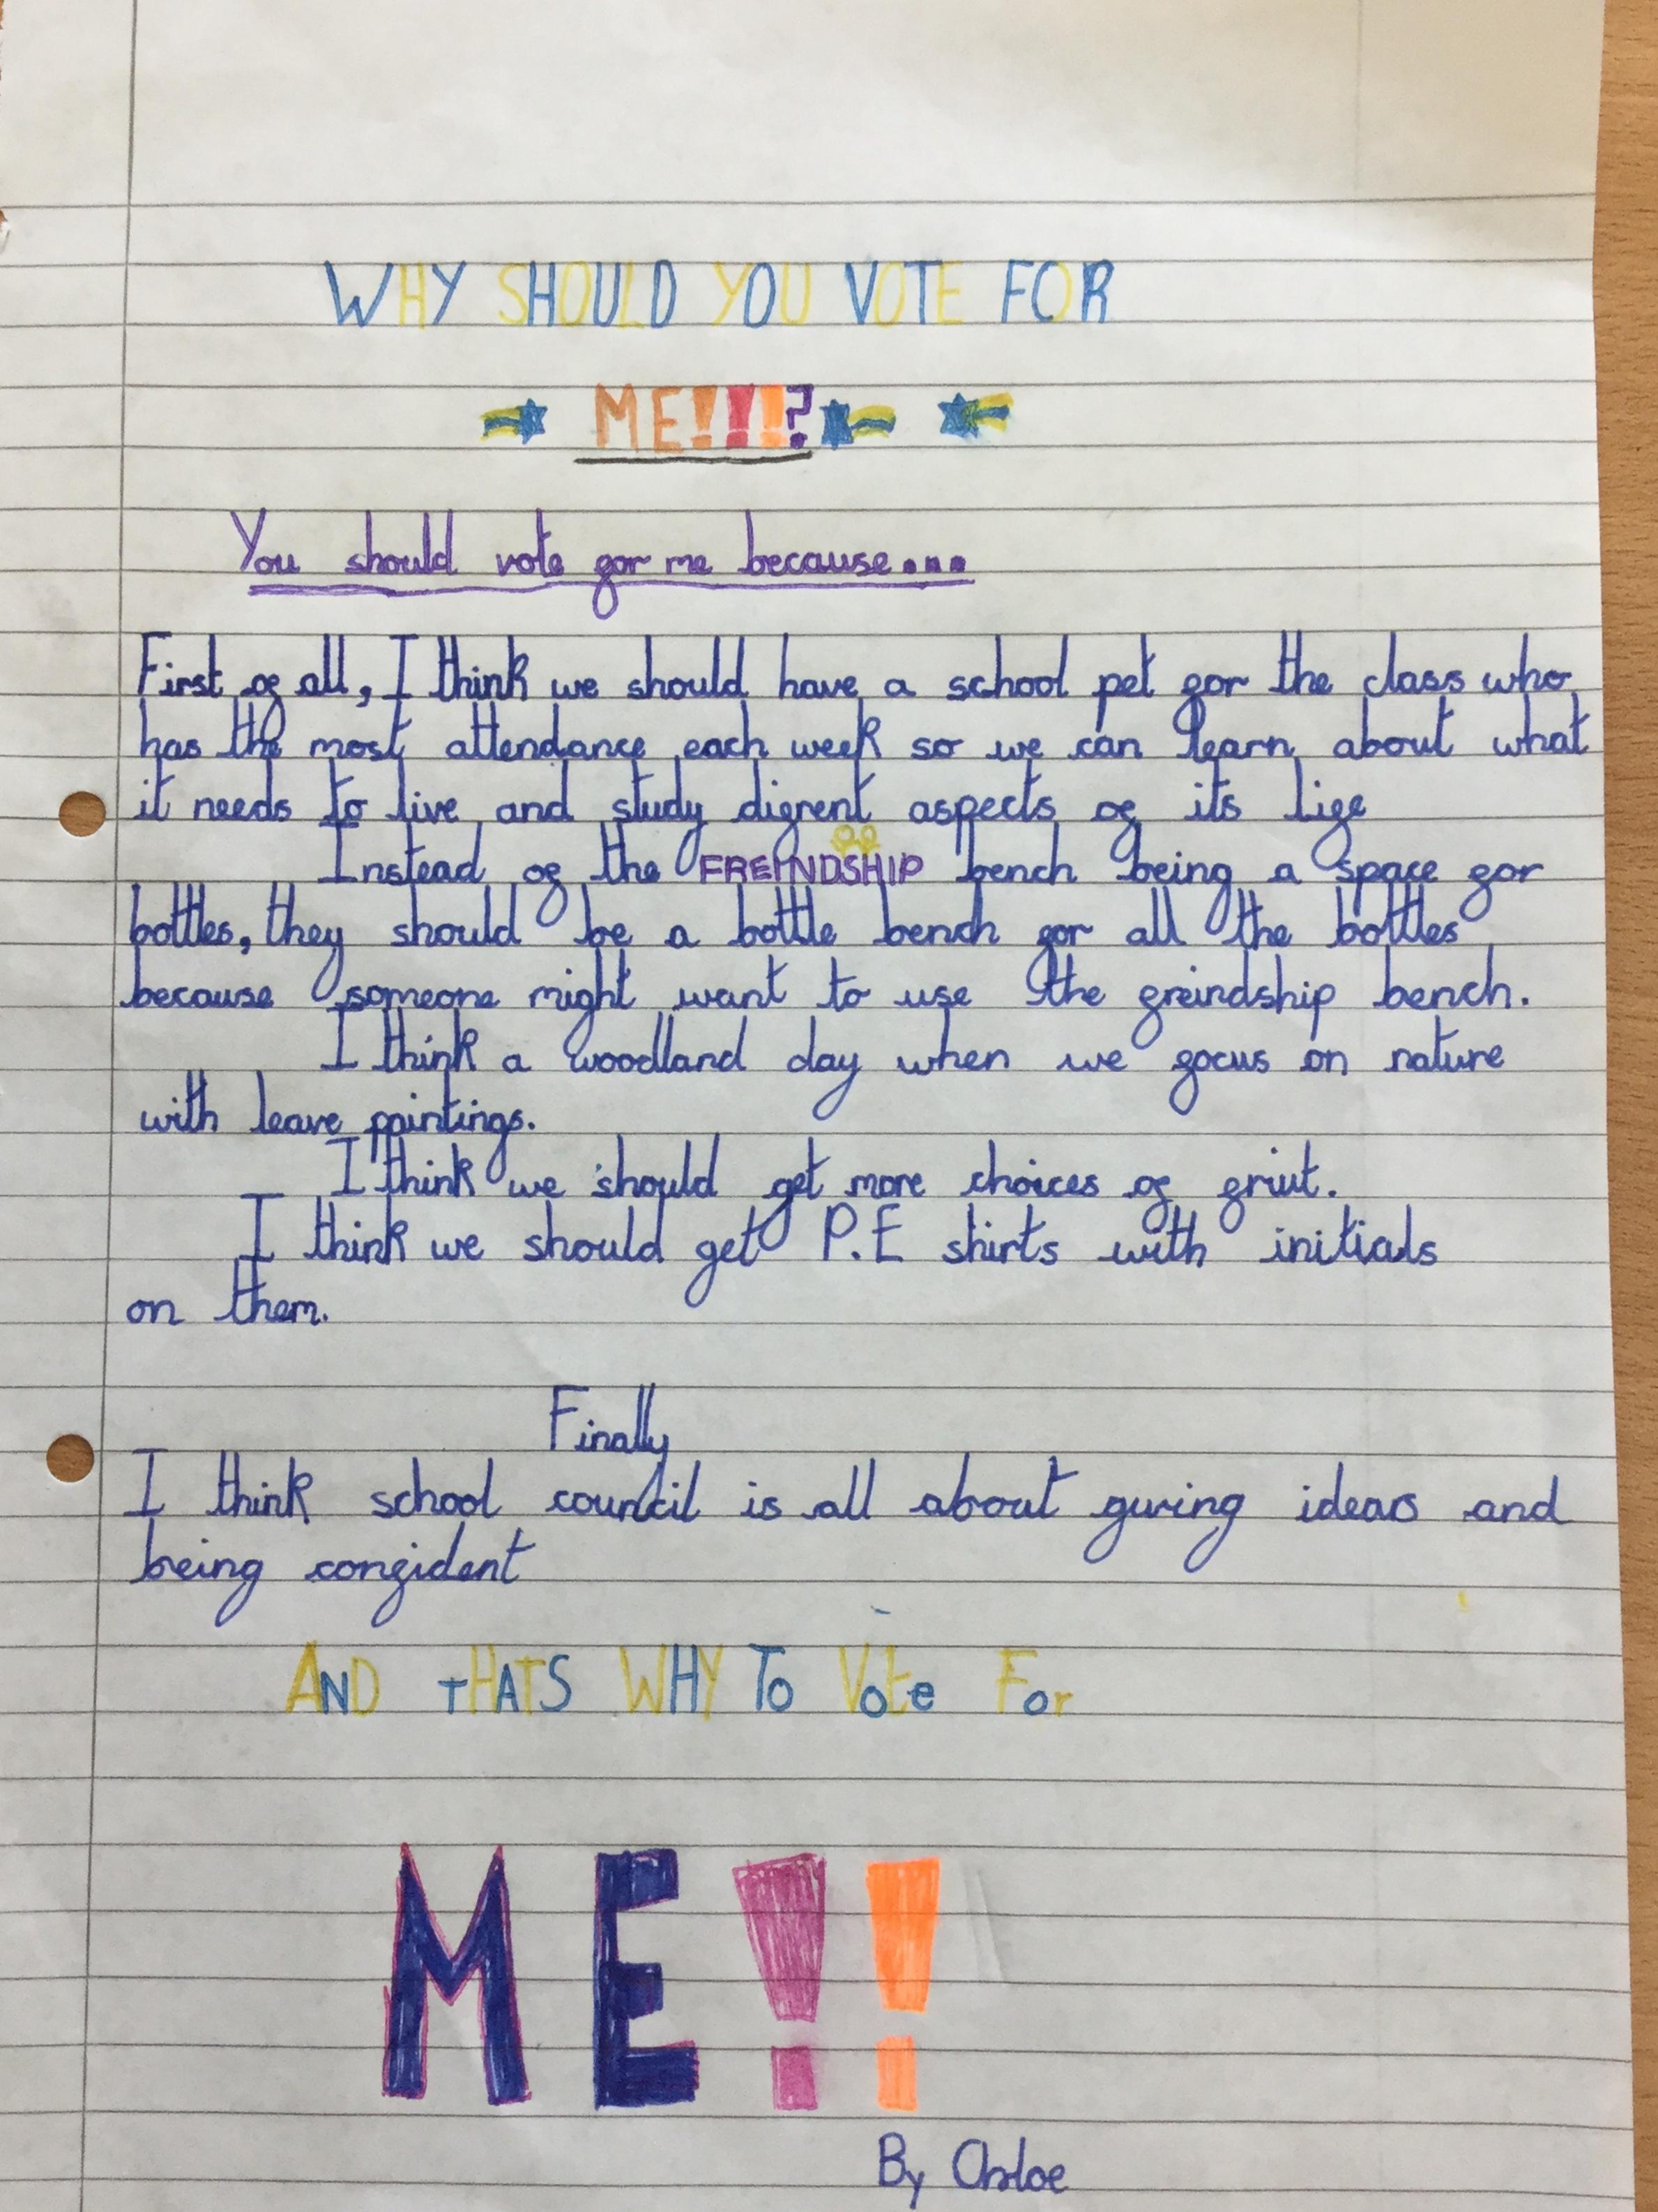 WHY SHOULD YOU VOTE FOR
ME!!!?
You should vote for me because...
First of all, I think we should have a school pet for the class who
has the most attendance each week so we can learn about what
it needs to live and study difrent aspects of its life
Instead of the FREINDSHIP bench being a space for
bottles, they should be a bottle bench for all the bottles
because someone might want to use the freindship bench.
I think a woodland day when we focus on nature
with leave paintings.
I think we should get more choices of friut.
I think we should get P.E shirts with initials
on them.
Finally
I think school council is all about giving ideas and
being confident
AND tHATS WHY To Vote For
ME!!
By Chloe